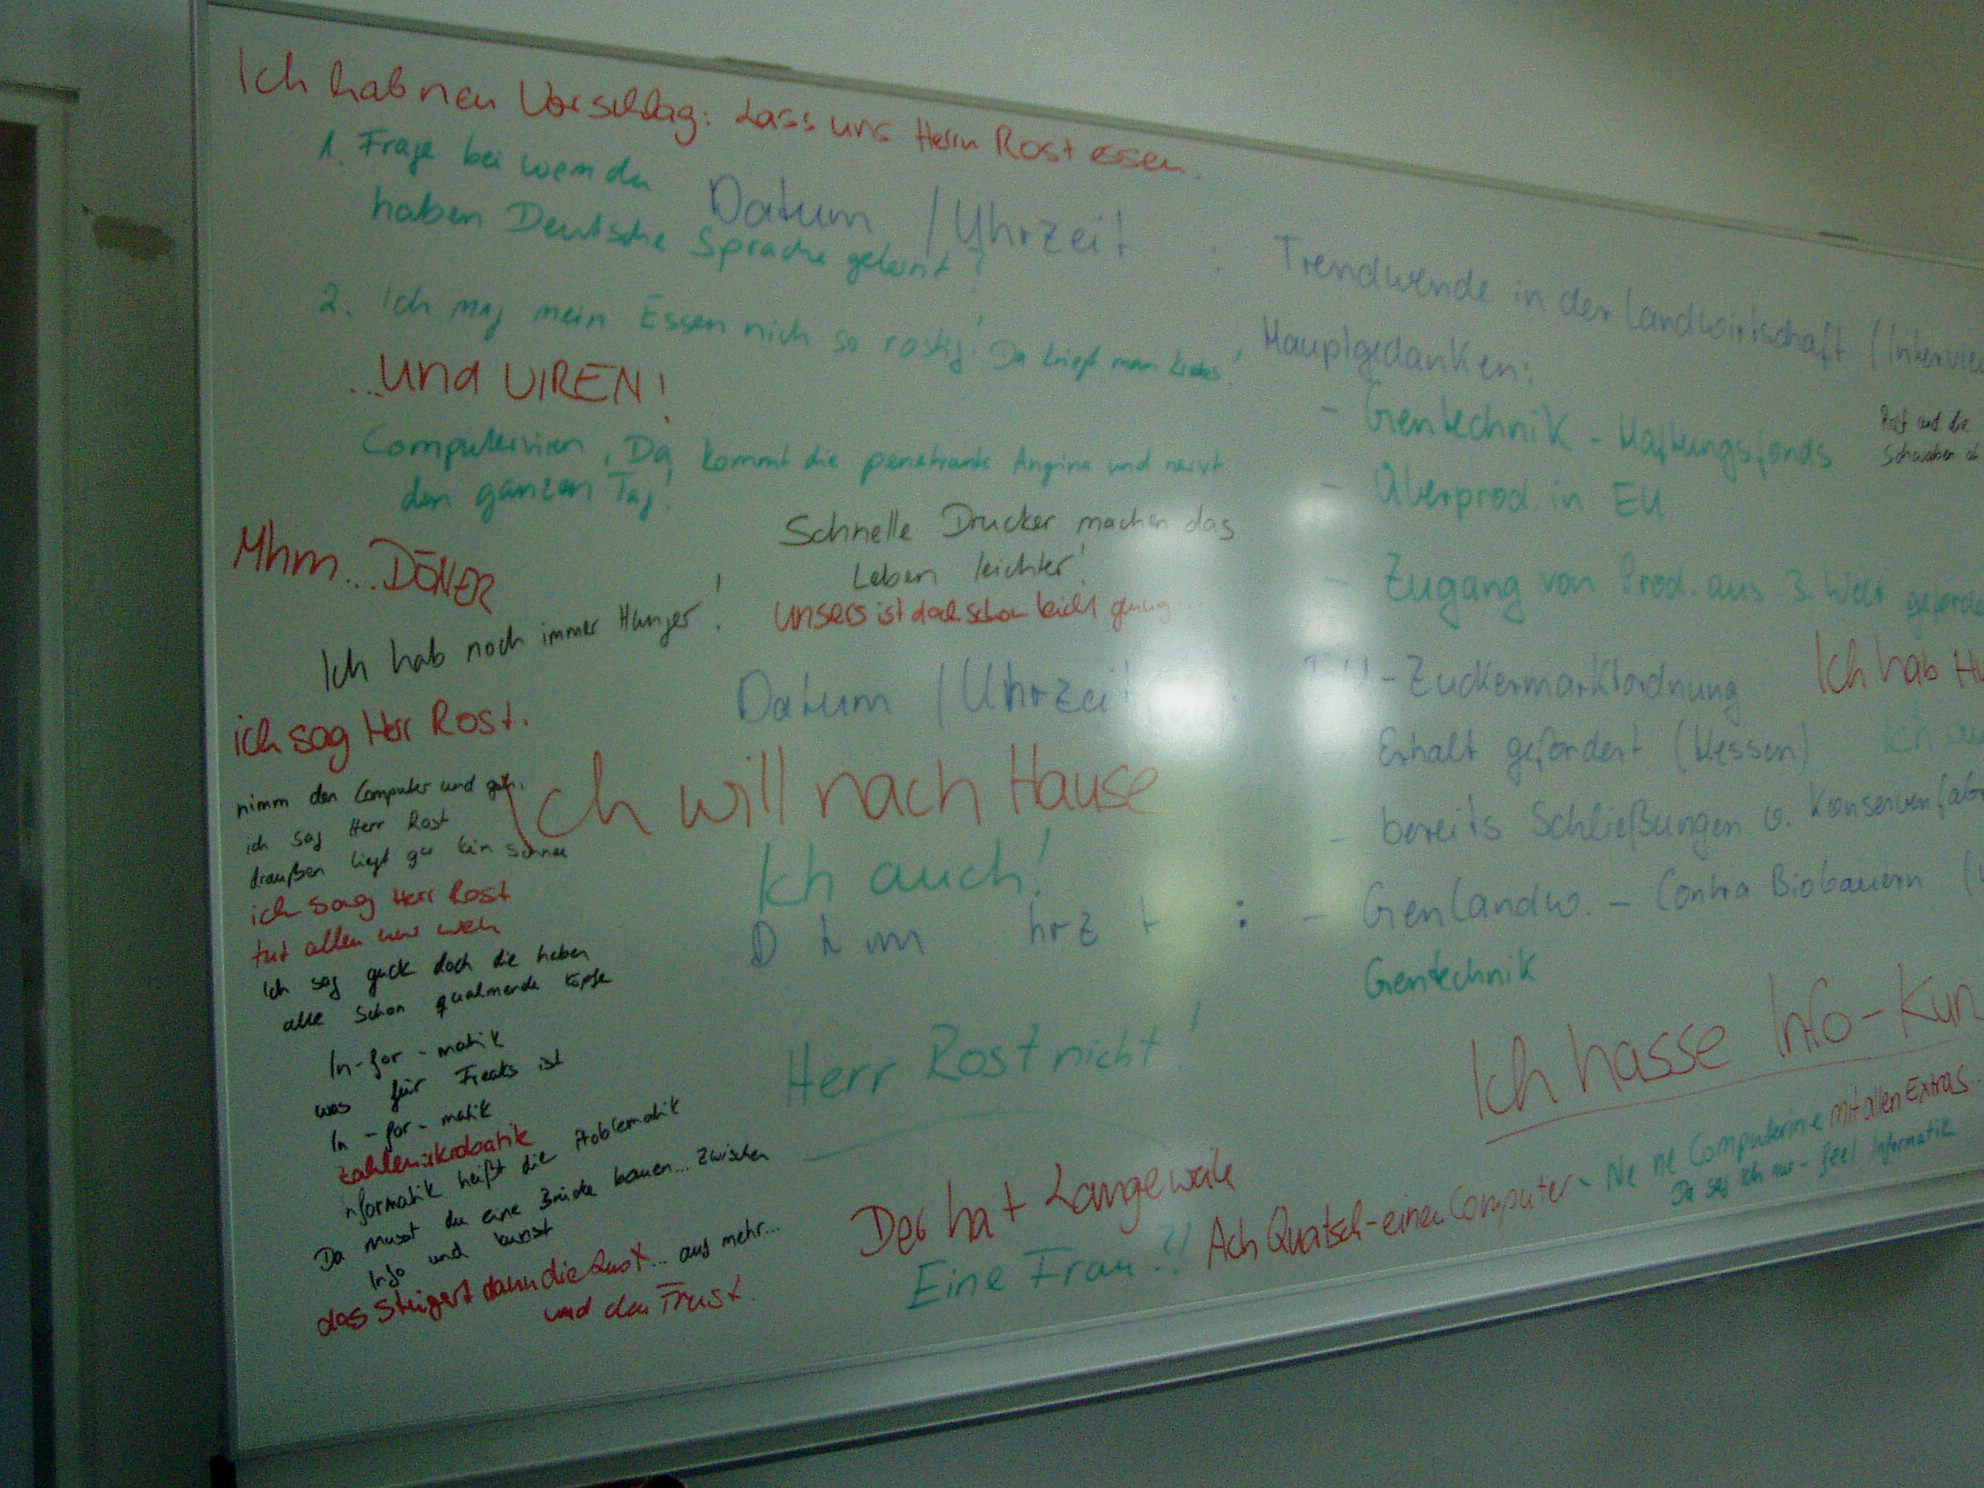 Ich hab nen Vorschlag: Lass uns Herrn Rost essen.
1. Frage bei wem du
haben Deutsche Sprache gelernt?
2. Ich mag mein Essen nich so rostig! Da kriegt man Krebs!
...und VIREN!
Computerviren, Da kommt die penetrante Angina und nervt
den ganzen Tag!
Mhm... DÖNER
Ich hab noch immer Hunger!
ich sag Herr Rost.
nimm den Computer und geh.
ich sag Herr Rost
draußen liegt gar kein Schnee
ich sag Herr Rost
tut allen nur weh
Ich sag guck doch die haben
alle schon qualmende Köpfe
In-for-matik
was für Freaks ist
In-for-matik
Zahlenakrobatik
nformatik heißt die Problematik
Da musst du eine Brücke bauen... zwischen
Info und kunst
das steigert dann die Lust... auf mehr...
und den Frust.
Datum / Uhrzeit :
Schnelle Drucker machen das
Leben leichter!
Unsers ist doch schon leicht genug...
Datum / Uhrzeit
Ich will nach Hause
Ich auch!
D t um hrz t :
Herr Rost nicht!
Der hat Langeweile
Eine Frau?!
Ach Quatsch - einen Computer -
Ne ne Computerine mit allen Extras.
Da sag ich nur - feel Informatik
Trendwende in der Landwirtschaft (Intervie
Hauptgedanken:
- Gentechnik - Haftungsfonds
Rost und die
Schwaben
- Überprod. in EU
- Zugang von Prod. aus 3. Welt geforde
- Zuckermarktordnung
Ich hab Hu
Erhalt gefordert (Hessen)
Ich au
- bereits Schließungen v. Konservenfabr
- Genlandw. - Contra Biobauern (
Gentechnik
Ich hasse Info-Kun